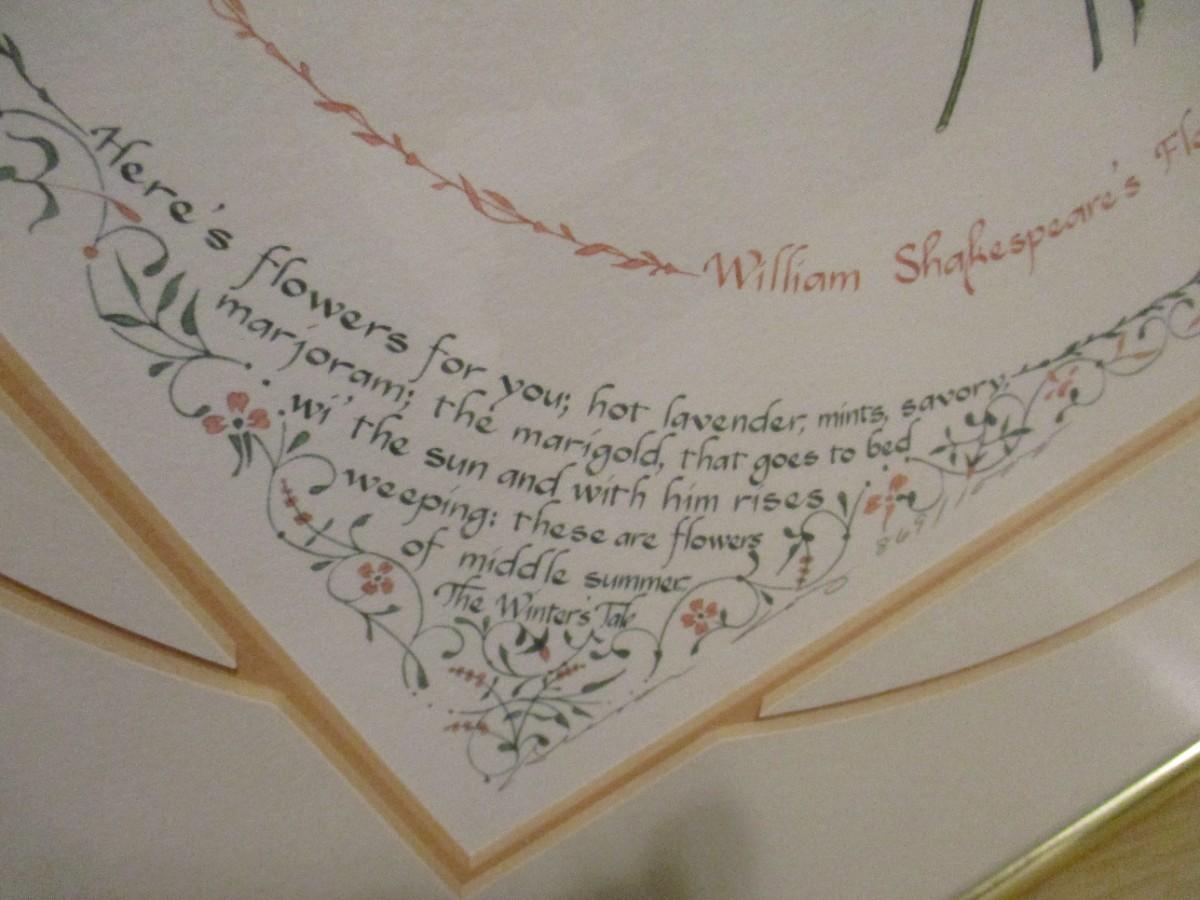 William Shakespeare's
Here's flowers for you; hot lavender, mints, savory,
marjoram; the marigold, that goes to bed
wi' the sun and with him rises
weeping: these are flowers
of middle summer.
The Winter's Tale